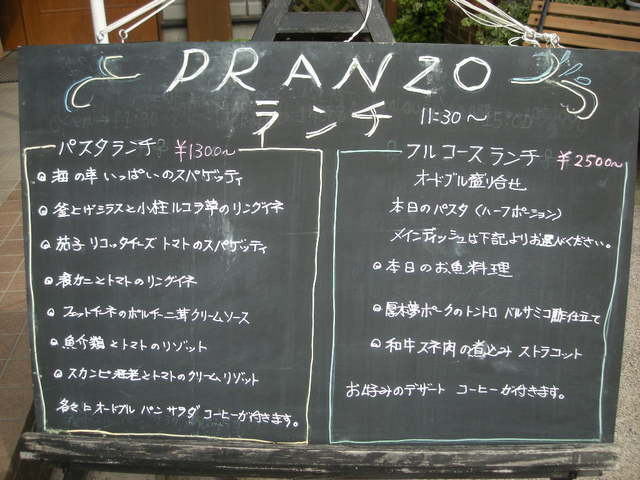 PRANZO
ランチ 11:30～
パスタランチ ¥1300～
海の幸いっぱいのスパゲッティ
釜上げシラスと小柱ルコラ草のリングイネ
茄子リコッタチーズトマトのスパゲッティ
渡カニとトマトのリングイネ
フェットチーネのポルチーニ茸クリームソース
魚介類とトマトのリゾット
スカンピ海老とトマトのクリームリゾット
各々にオードブル パン サラダ コーヒーが付きます。
フルコースランチ ¥2500～
オードブル盛り合せ
本日のパスタ（ハーフポーション）
メインディッシュは下記よりお選びください。
本日のお魚料理
厚木夢ポークのトントロ バルサミコ酢仕立て
和牛スネ肉の煮こみ ストラコット
お好みのデザート コーヒーが付きます。